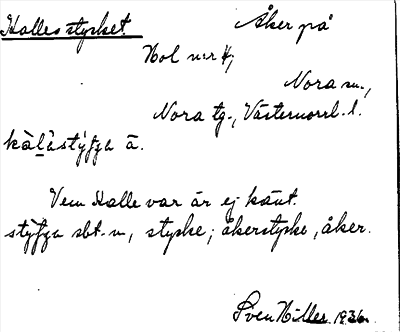 Kallesstycket Åker på
Hol n:r 4,
Nora sn.,
Nora tg., Västernorrl. l.
kàḷàstýʃʒa ā.
Vem Kalle var är ej känt.
stýʃʒa sbt. n, stycke; åkerstycke, åker.
Sven Hiller 1936.